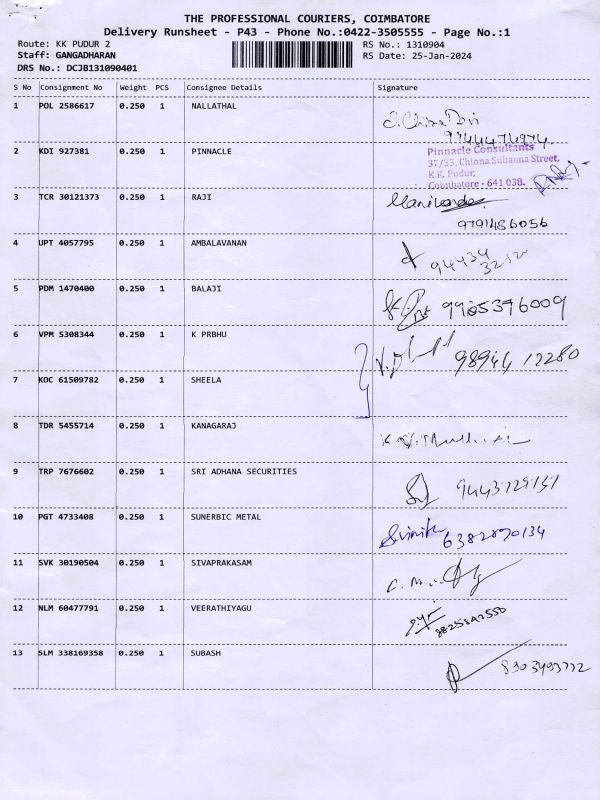 THE PROFESSIONAL COURIERS, COIMBATORE
Delivery Runsheet - P43 - Phone No.:0422-3505555 - Page No.:1
Route: KK PUDUR 2 RS No.: 1310904
Staff: GANGADHARAN RS Date: 25-Jan-2024
DRS No.: DCJB131090401
S No Consignment No Weight PCS Consignee Details Signature
1 POL 2586617 0.250 1 NALLATHAL
2 KDI 927381 0.250 1 PINNACLE
Pinnacle Consultants
37/33, Chinna Subanna Street,
K.K. Pudur,
Coimbatore - 641 038.
3 TCR 30121373 0.250 1 RAJI
9791486056
4 UPT 4057795 0.250 1 AMBALAVANAN
5 PDM 1470400 0.250 1 BALAJI
9985396009
6 VPM 5308344 0.250 1 K PRBHU
98944 12280
7 KOC 61509782 0.250 1 SHEELA
8 TDR 5455714 0.250 1 KANAGARAJ
9 TRP 7676602 0.250 1 SRI ADHANA SECURITIES
10 PGT 4733408 0.250 1 SUNERBIC METAL
6382890134
11 SVK 30190504 0.250 1 SIVAPRAKASAM
12 NLM 60477791 0.250 1 VEERATHIYAGU
13 SLM 338169358 0.250 1 SUBASH